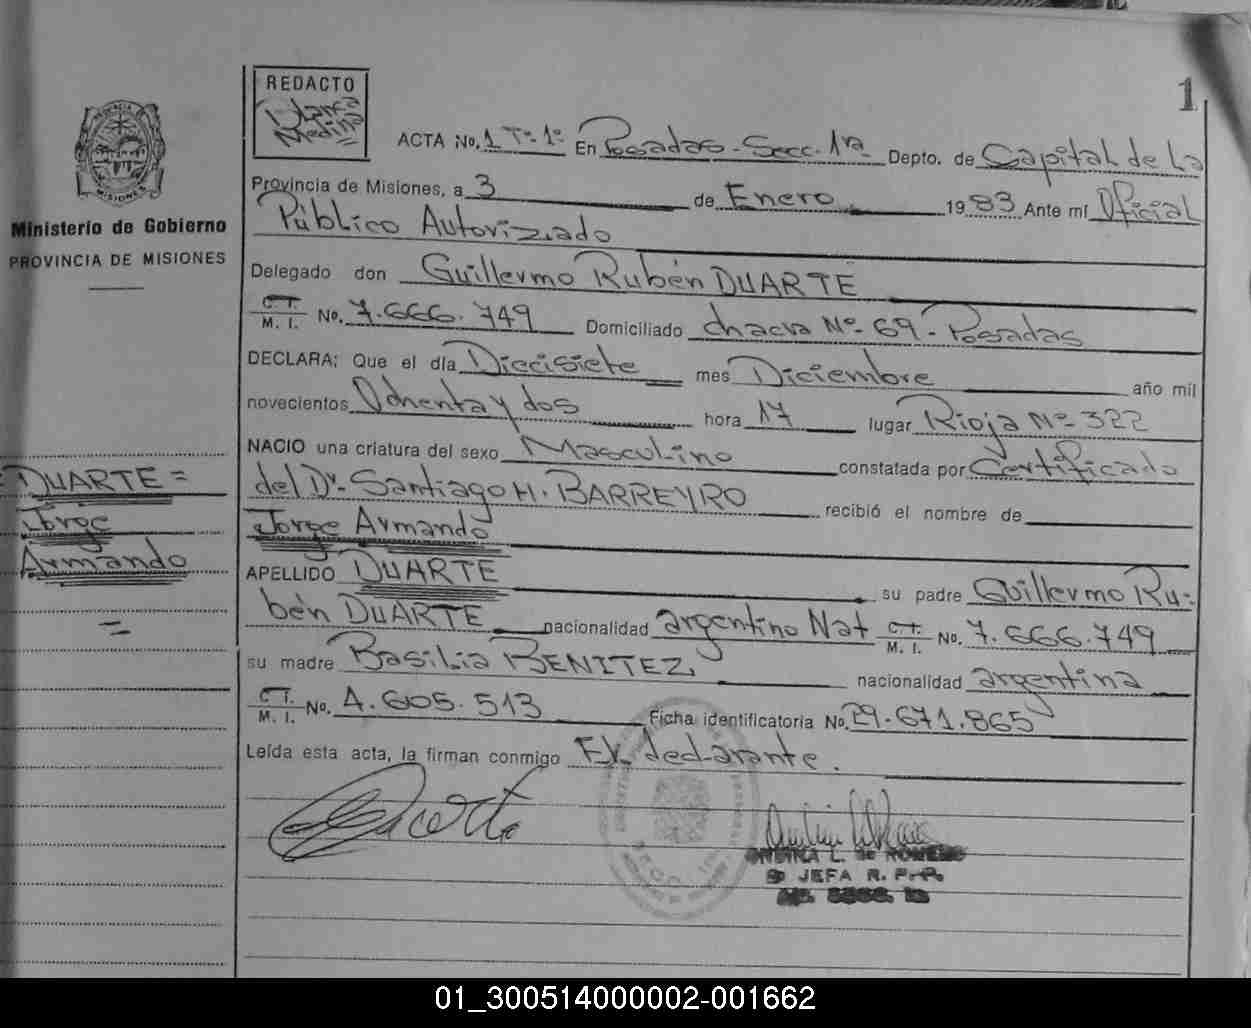 1
REDACTO
Blanca
Medina
ACTA No. 1 Tº 1º En Posadas - Secc. 1ra Depto. de Capital de La
Provincia de Misiones, a 3 de Enero 1983 Ante mí Oficial
Público Autorizado
PROVINCIA
MISIONES
Ministerio de Gobierno
PROVINCIA DE MISIONES
Delegado don Guillermo Rubén DUARTE
C. I.
M. I. No. 7.666.749 Domiciliado chacra Nº 69 - Posadas
DECLARA: Que el día Diecisiete mes Diciembre año mil
novecientos Ochenta y dos hora 17 lugar Rioja Nº 322
NACIO una criatura del sexo Masculino constatada por Certificado
del Dr. Santiago H. BARREYRO recibió el nombre de
Jorge Armando
DUARTE =
Jorge
Armando
APELLIDO DUARTE su padre Guillermo Ru-
bén DUARTE nacionalidad argentino Nat C. I.
M. I. No. 7.666.749
su madre Basilia BENITEZ, nacionalidad argentina
C. I.
M. I. No. 4.605.513 Ficha identificatoria No. 29.671.865
Leída esta acta, la firman conmigo El declarante.
Duarte
L. de ROMERO
JEFA R. P. P.
01_300514000002-001662